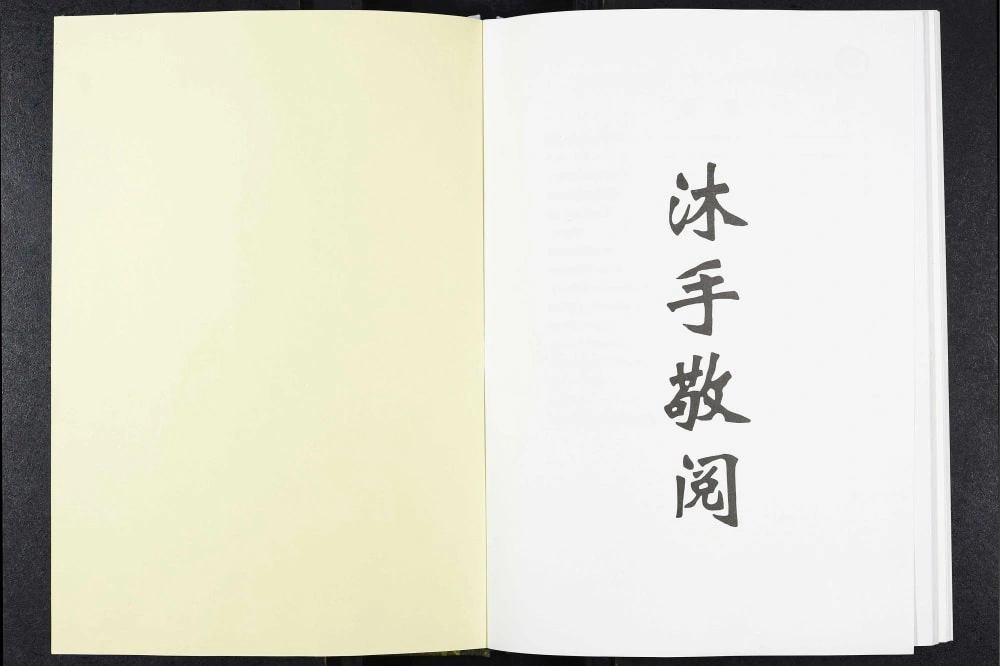 沐手敬阅